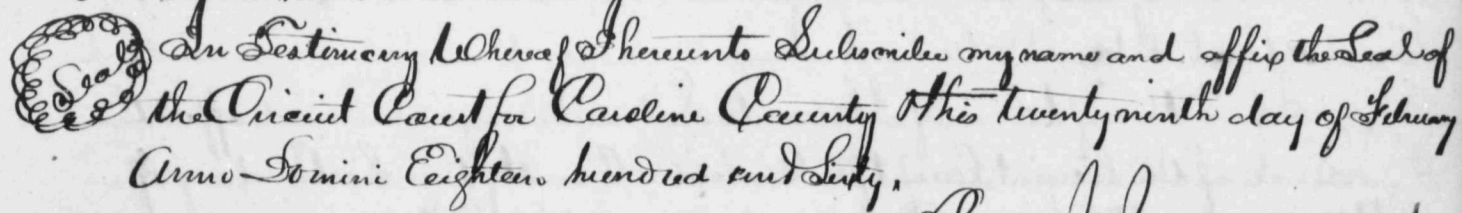 Seal In Testimony Whereof I hereunto Subscribe my name and affix the Seal of
the Circuit Court for Caroline County this twenty ninth day of February
Anno Domini Eighteen hundred and Sixty.